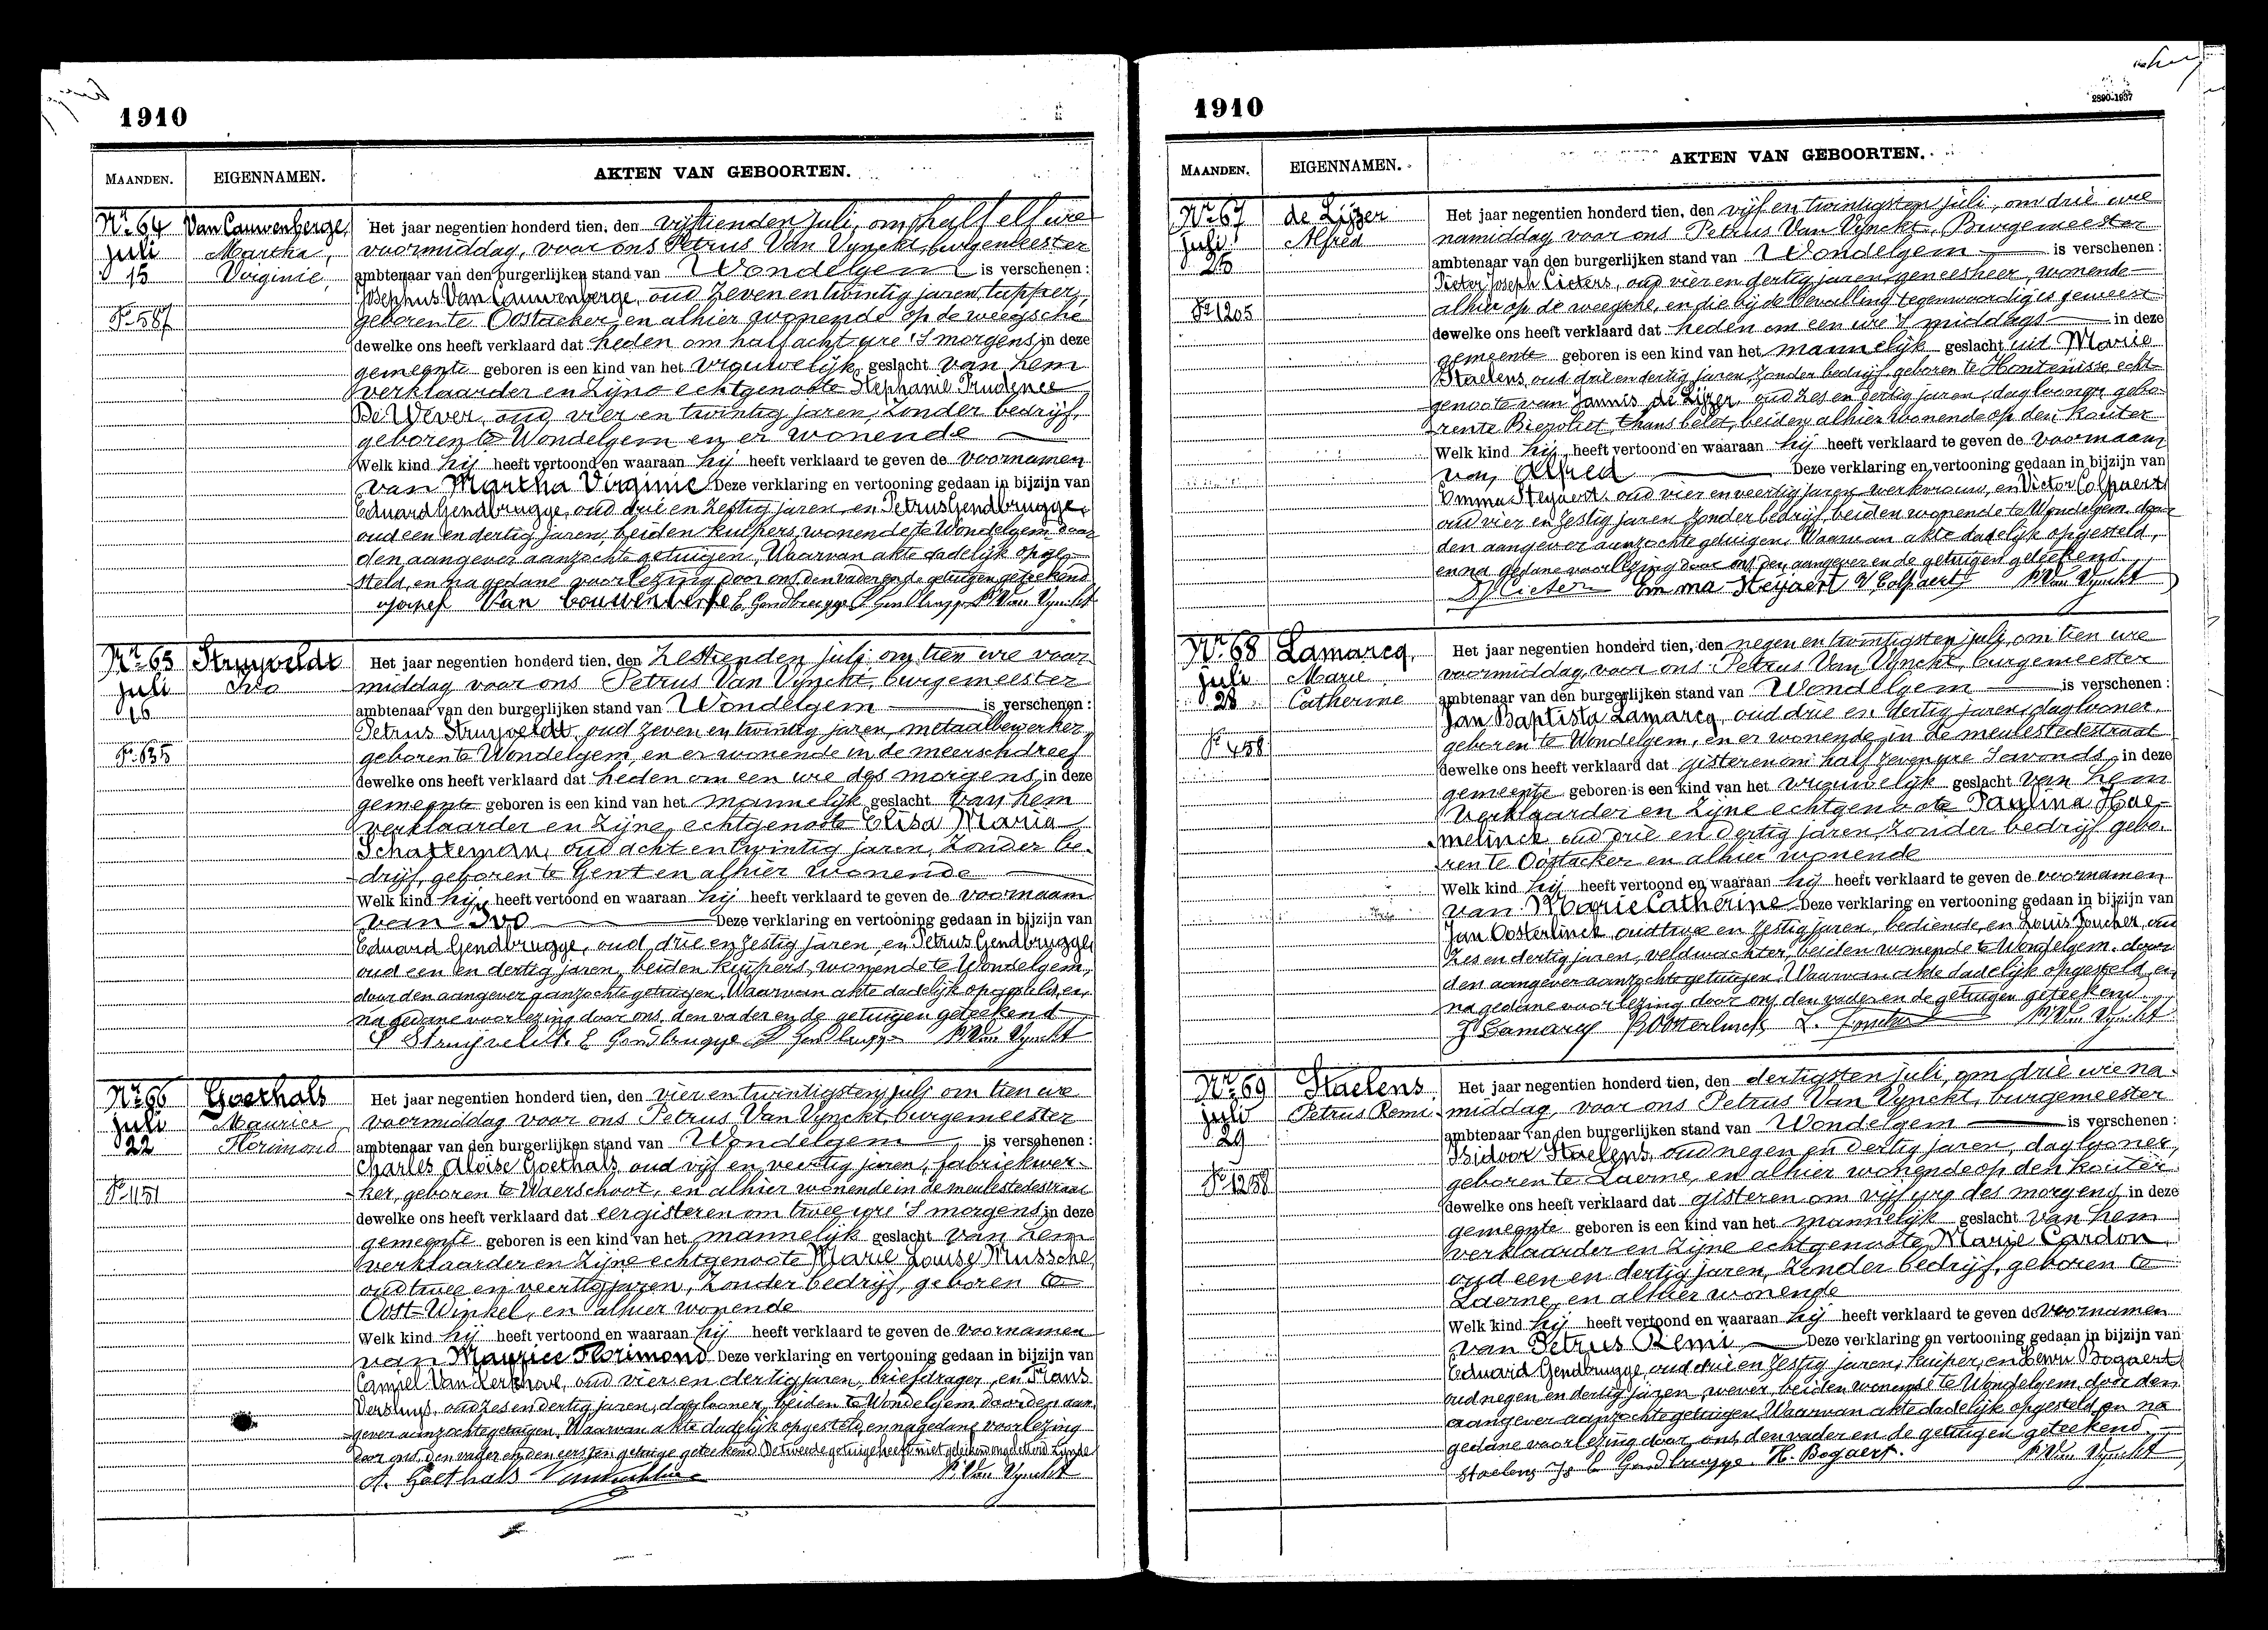 1910
MAANDEN. EIGENNAMEN. AKTEN VAN GEBOORTEN.
Nr 64
Juli
15
Fo 587
Van Cauwenberge,
Martha,
Virginie,
Het jaar negentien honderd tien, den vijftienden juli, om half elf ure
voormiddag, voor ons Petrus Van Vynckt, burgemeester
ambtenaar van den burgerlijken stand van Wondelgem is verschenen:
Josephus Van Cauwenberge, oud zeven en twintig jaren, tapper,
geboren te Oostacker, en alhier wonende op de weegsche
dewelke ons heeft verklaard dat heden om half acht ure 's morgens, in deze
gemeente geboren is een kind van het vrouwelijk geslacht van hem
verklaarder en zijne echtgenoote Stephanie Prudence
De Wever, oud vier en twintig jaren, zonder bedrijf,
geboren te Wondelgem en er wonende
Welk kind hij heeft vertoond en waaraan hij heeft verklaard te geven de voornamen
van Martha Virginie Deze verklaring en vertooning gedaan in bijzijn van
Eduard Gendbrugge, oud drie en zestig jaren, en Petrus Gendbrugge,
oud een en dertig jaren, beiden kuipers, wonende te Wondelgem door
den aangever aanzochte getuigen. Waarvan akte dadelijk opge-
steld, en na gedane voorlezing door ons, den vader en de getuigen geteekend
Josef Van Cauwenberge E. Gendbrugge P. Gendbrugge P. Van Vynckt
Nr 65
Juli
16
Fo 635
Struyveldt
Ivo
Het jaar negentien honderd tien, den zestienden juli, om tien ure voor
middag, voor ons Petrus Van Vynckt, burgemeester
ambtenaar van den burgerlijken stand van Wondelgem is verschenen:
Petrus Struyveldt, oud zeven en twintig jaren, metaalbewerker,
geboren te Wondelgem, en er wonende in de meerschdreef
dewelke ons heeft verklaard dat heden om een ure des morgens, in deze
gemeente geboren is een kind van het mannelijk geslacht van hem
verklaarder en zijne echtgenoote Elisa Maria
Schatteman, oud acht en twintig jaren, zonder be-
drijf, geboren te Gent en alhier wonende
Welk kind hij heeft vertoond en waaraan hij heeft verklaard te geven de voornaam
van Ivo Deze verklaring en vertooning gedaan in bijzijn van
Eduard Gendbrugge, oud drie en zestig jaren, en Petrus Gendbrugge
oud een en dertig jaren, beiden kuipers, wonende te Wondelgem,
door den aangever aanzochte getuigen. Waarvan akte dadelijk opgesteld, en,
na gedane voorlezing door ons, den vader en de getuigen geteekend
P Struyveldt. E Gendbrugge P Gendbrugge P. Van Vynckt
Nr 66
Juli
22
Fo 1151
Goethals
Maurice
Florimond
Het jaar negentien honderd tien, den vier en twintigsten juli om tien ure
voormiddag voor ons Petrus Van Vynckt, burgemeester
ambtenaar van den burgerlijken stand van Wondelgem is verschenen:
Charles Aloïse Goethals, oud vijf en veertig jaren, fabriekwer-
ker, geboren te Waerschoot, en alhier wonende in de meulestedestraat
dewelke ons heeft verklaard dat eergisteren om twee ure 's morgens, in deze
gemeente geboren is een kind van het mannelijk geslacht van hem
verklaarder en zijne echtgenoote Marie Louise Mussche,
oud twee en veertig jaren, zonder bedrijf, geboren te
Oost-Winkel, en alhier wonende
Welk kind hij heeft vertoond en waaraan hij heeft verklaard te geven de voornamen
van Maurice Florimond Deze verklaring en vertooning gedaan in bijzijn van
Camiel Van Kerkhove, oud vier en dertig jaren, briefdrager, en Frans
Versluys, oud zes en dertig jaren, daglooner, beiden te Wondelgem door den aan
gever aanzochte getuigen. Waarvan akte dadelijk opgesteld, en na gedane voorlezing
door ons, den vader en den eersten getuige geteekend. De tweede getuige heeft niet geteekend ongeletterd zijnde
A. Goethals P. Van Vynckt
1910
2890-1937
MAANDEN. EIGENNAMEN. AKTEN VAN GEBOORTEN.
Nr 67
Juli
25
Fo 1205
de Lijzer
Alfred
Het jaar negentien honderd tien, den vijf en twintigsten juli, om drie ure
namiddag voor ons Petrus Van Vynckt, Burgemeester
ambtenaar van den burgerlijken stand van Wondelgem is verschenen:
Pieter Joseph Cieters, oud vier en dertig jaren, geneesheer, wonende
alhier op de weegsche, en die bij de bevalling tegenwoordig is geweest
dewelke ons heeft verklaard dat heden om een ure 's middags in deze
gemeente geboren is een kind van het mannelijk geslacht uit Marie
Staelens, oud drie en dertig jaren, zonder bedrijf, geboren te Hontenisse, echt-
genoote van Jannis de Lijzer, oud zes en dertig jaren, daglooner, gebo-
ren te Biervliet, thans belet, beiden alhier wonende op den kouter
Welk kind hij heeft vertoond en waaraan hij heeft verklaard te geven de voornaam
van Alfred Deze verklaring en vertooning gedaan in bijzijn van
Emma Steyaert, oud vier en veertig jaren, werkvrouw, en Victor Colpaert
oud vier en zestig jaren zonder bedrijf, beiden wonende te Wondelgem door
den aangever aanzochte getuigen. Waarvan akte dadelijk opgesteld,
en na gedane voorlezing door ons, den aangever en de getuigen geteekend.
Emma Steyaert V. Colpaert P. Van Vynckt
Nr 68
Juli
28
Fo 458
Lamarcq,
Marie
Catherine
Het jaar negentien honderd tien, den negen en twintigsten juli, om tien ure
voormiddag, voor ons Petrus Van Vynckt, burgemeester
ambtenaar van den burgerlijken stand van Wondelgem is verschenen:
Jan Baptista Lamarcq, oud drie en dertig jaren, daglooner,
geboren te Wondelgem, en er wonende in de meulestedestraat
dewelke ons heeft verklaard dat gisteren om half zeven ure 's avonds in deze
gemeente geboren is een kind van het vrouwelijk geslacht van hem
verklaarder en zijne echtgenoote Paulina Hae-
melinck oud drie en dertig jaren zonder bedrijf gebo-
ren te Oostacker en alhier wonende
Welk kind hij heeft vertoond en waaraan hij heeft verklaard te geven de voornamen
van Marie Catherine Deze verklaring en vertooning gedaan in bijzijn van
Jan Oosterlinck oud twee en zestig jaren, bediende, en Louis Foucher, oud
zes en dertig jaren, veldwachter, beiden wonende te Wondelgem. door
den aangever aanzochte getuigen. Waarvan akte dadelijk opgesteld, en
na gedane voorlezing door ons, den vader en de getuigen geteekend
J Lamarcq J Oosterlinck L. Foucher P. Van Vynckt
Nr 69
Juli
29
Fo 1258
Staelens
Petrus Remi
Het jaar negentien honderd tien, den dertigsten juli, om drie ure na-
middag, voor ons Petrus Van Vynckt, burgemeester
ambtenaar van den burgerlijken stand van Wondelgem is verschenen:
Isidoor Staelens, oud negen en dertig jaren, daglooner,
geboren te Laerne, en alhier wonende op den kouter
dewelke ons heeft verklaard dat gisteren om vijf ure des morgens, in deze
gemeente geboren is een kind van het mannelijk geslacht van hem
verklaarder en zijne echtgenoote Marie Cardon,
oud een en dertig jaren, zonder bedrijf, geboren te
Laerne, en alhier wonende
Welk kind hij heeft vertoond en waaraan hij heeft verklaard te geven de voornamen
van Petrus Remi Deze verklaring en vertooning gedaan in bijzijn van
Eduard Gendbrugge, oud drie en zestig jaren, kuiper, en Henri Bogaert
oud negen en dertig jaren, wever, beiden wonende te Wondelgem, door den
aangever aanzochte getuigen. Waarvan akte dadelijk opgesteld en na
gedane voorlezing door ons, den vader en de getuigen geteekend
Staelens Is E Gendbrugge. H. Bogaert. P. Van Vynckt